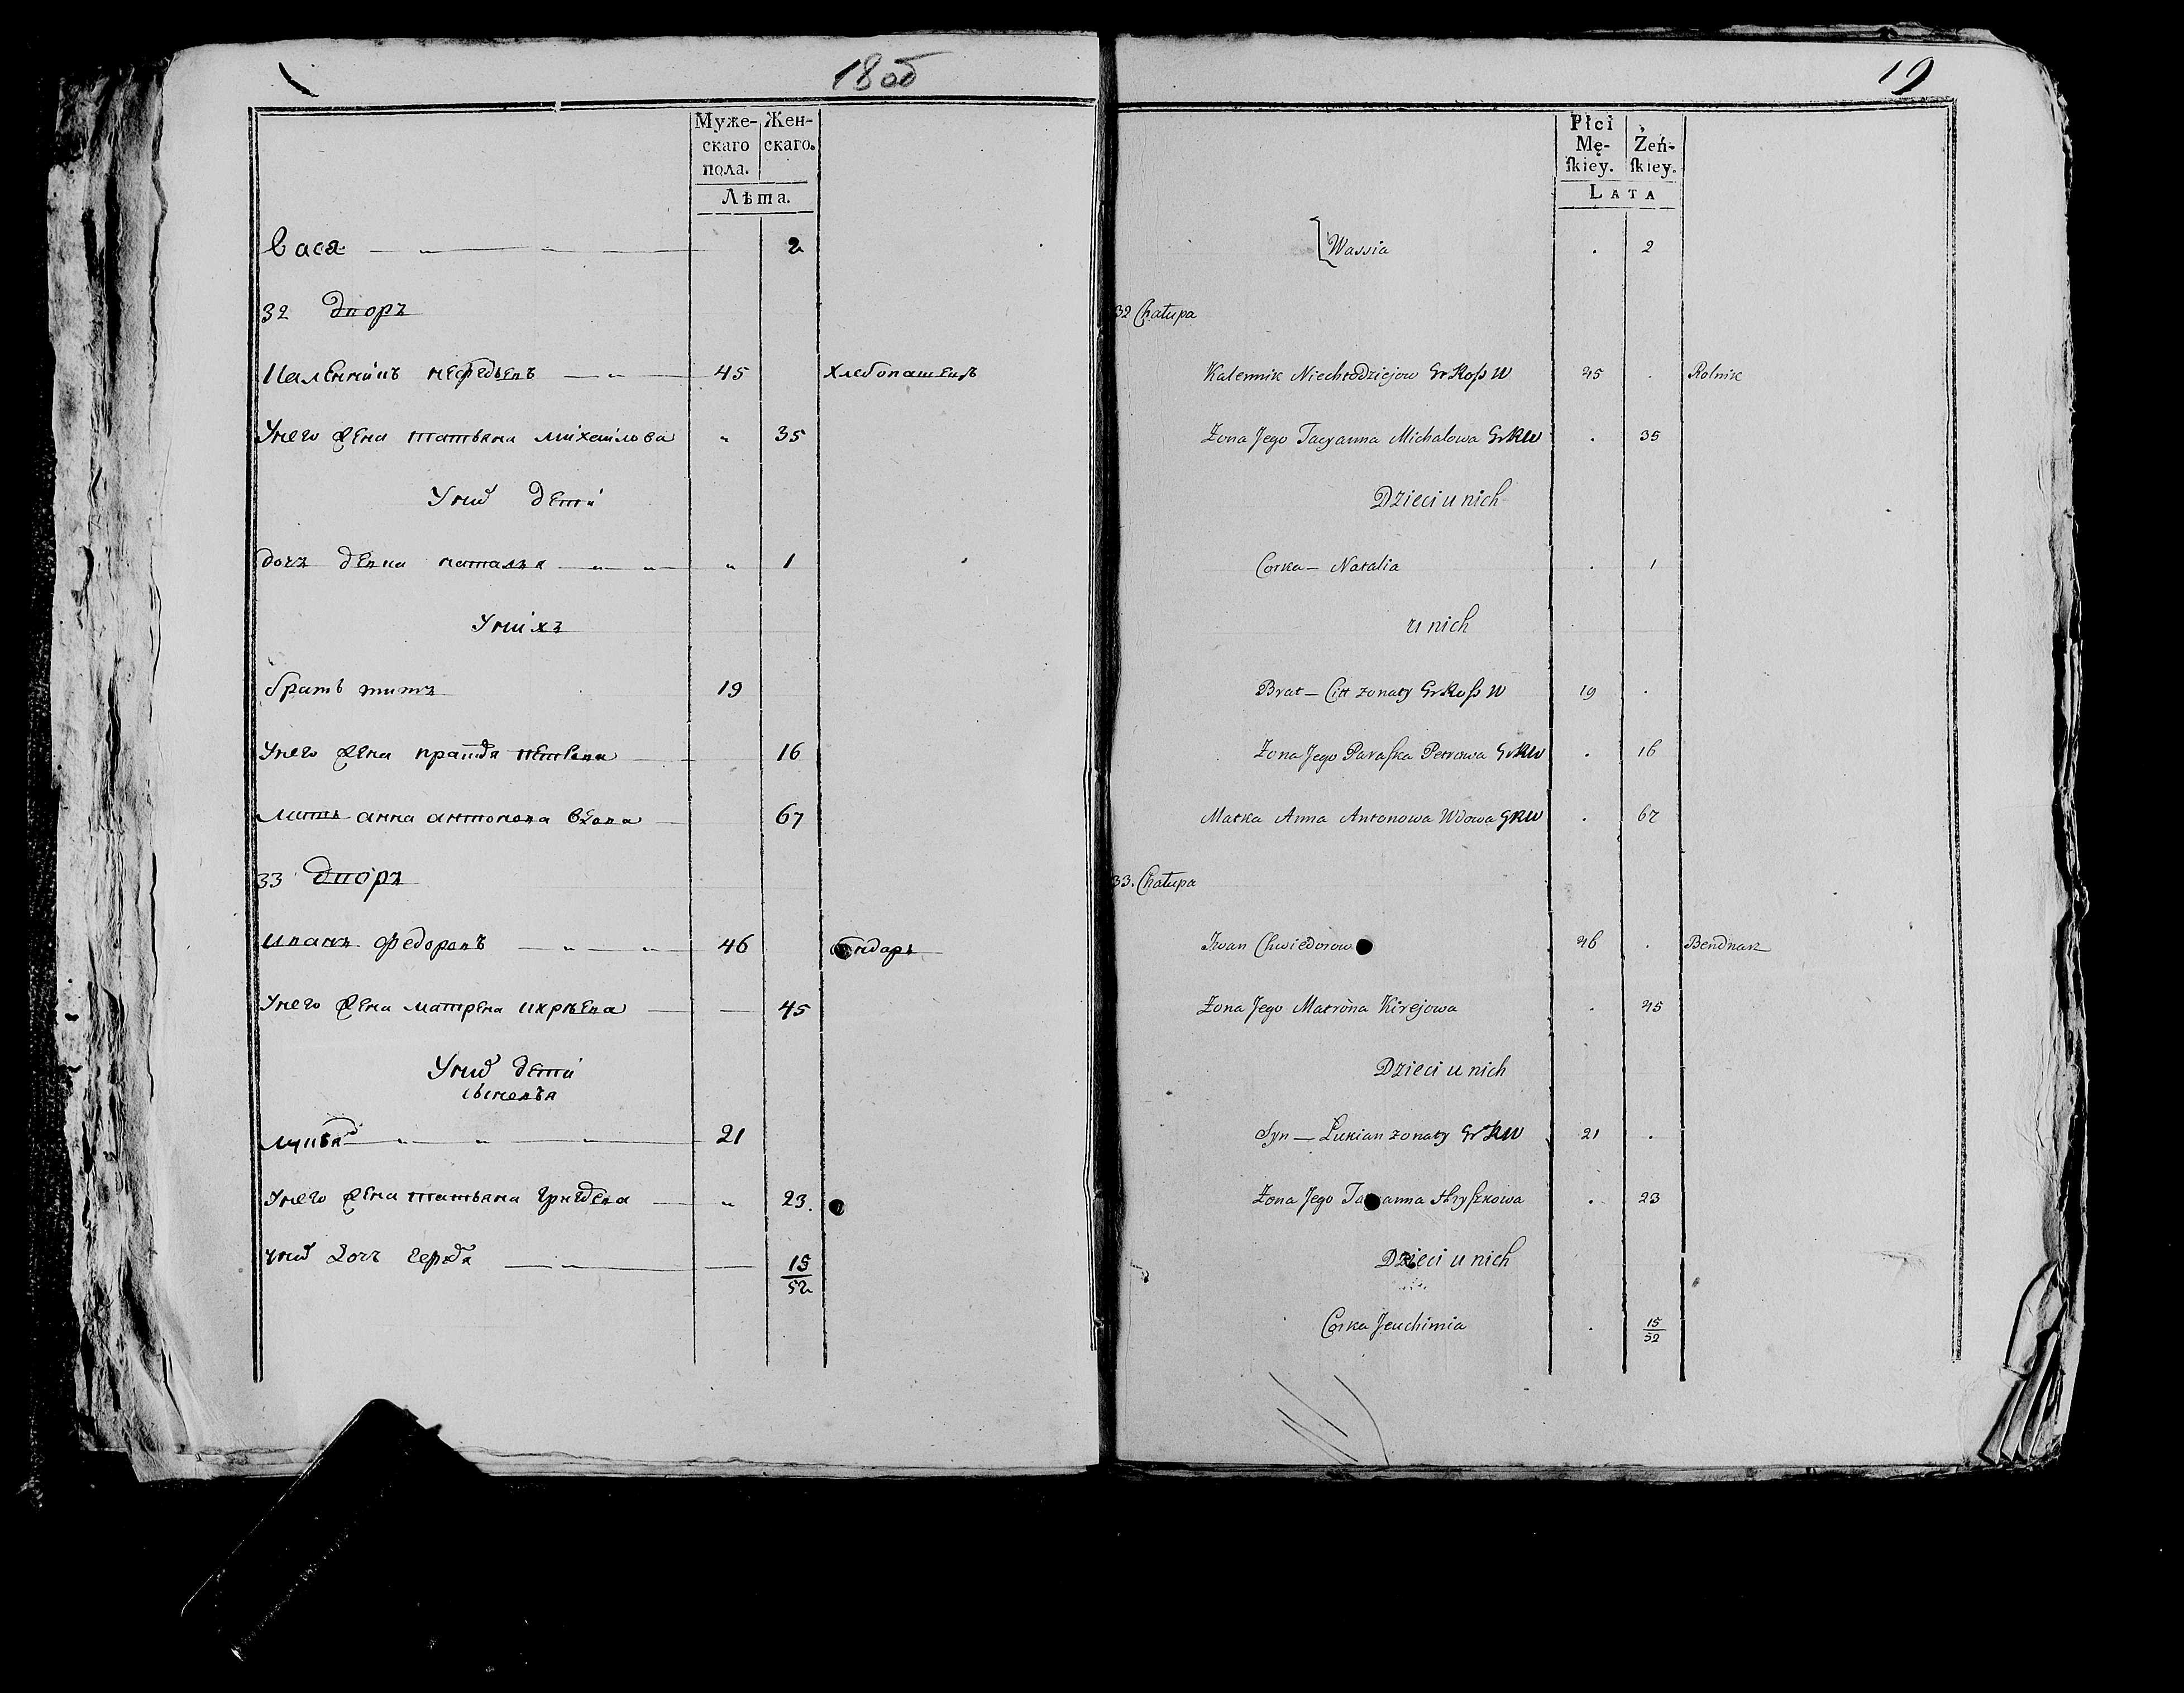 18 об
Муже-
скаго
пола.
Жен-
скаго.
Лѣта.
Вася 2
32 дворъ
Каленникъ нефедьевъ 45 Хлебопашецъ
Унего жена татьяна михаилова " 35
Униⷯ дети
дочь девка наталья " 1
Унихъ
братъ титъ 19
Унего жена 16
мать анна антонова вдова 67
33 дворъ
иванъ федоровъ 46
Унего жена матрена киреева 45
Униⷯ дети
сыновья
21
Унего жена татьяна " 23.
униⷯ дочь 15
52
19
Płci
Mę-
ſkiey.
Zeń-
ſkiey.
LATA
Wassia . 2
32 Chałupa
Kalennik Niechrodziejow Gr Roſs W 45 . Rolnik
Zona Jego Tacyanna Michalowa GrRW . 35
Dzieci u nich
Corka — Natalia . 1
u nich
Brat — Citt zonaty Gr Roſs W 19 .
Zona Jego Paraſka Petrowa GrRW . 16
Matka Anna Antonowa Wdowa GRW . 67
33. Chałupa
Iwan Chwiedorow 46 . Bendnarz
Zona Jego Matrona Kirejowa . 45
Dzieci u nich
Syn — Łukian zonaty GrRW 21 .
Zona Jego Hryſzkowa . 23
Dzieci u nich
Corka Jeuchimia . 15
52